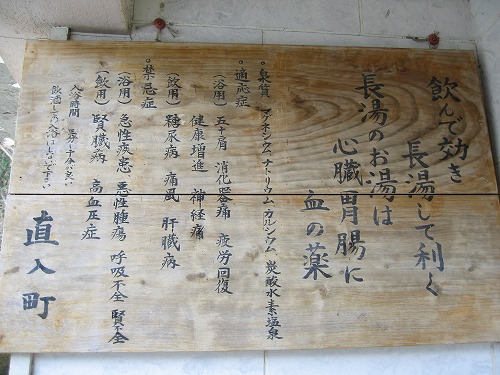 飲んで効き
長湯して利く
長湯のお湯は
心臓胃腸に
血の薬
◦泉質 マグネシウム ナトリウム カルシウム 炭酸水素塩泉
◦適応症
(浴用) 五十肩 消化器病 疲労回復
健康増進 神経痛
(飲用) 糖尿病 痛風 肝臓病
◦禁忌症
(浴用) 急性疾患 悪性腫瘍 呼吸不全 腎不全
(飲用) 腎臓病 高血圧症
入浴時間
直入町